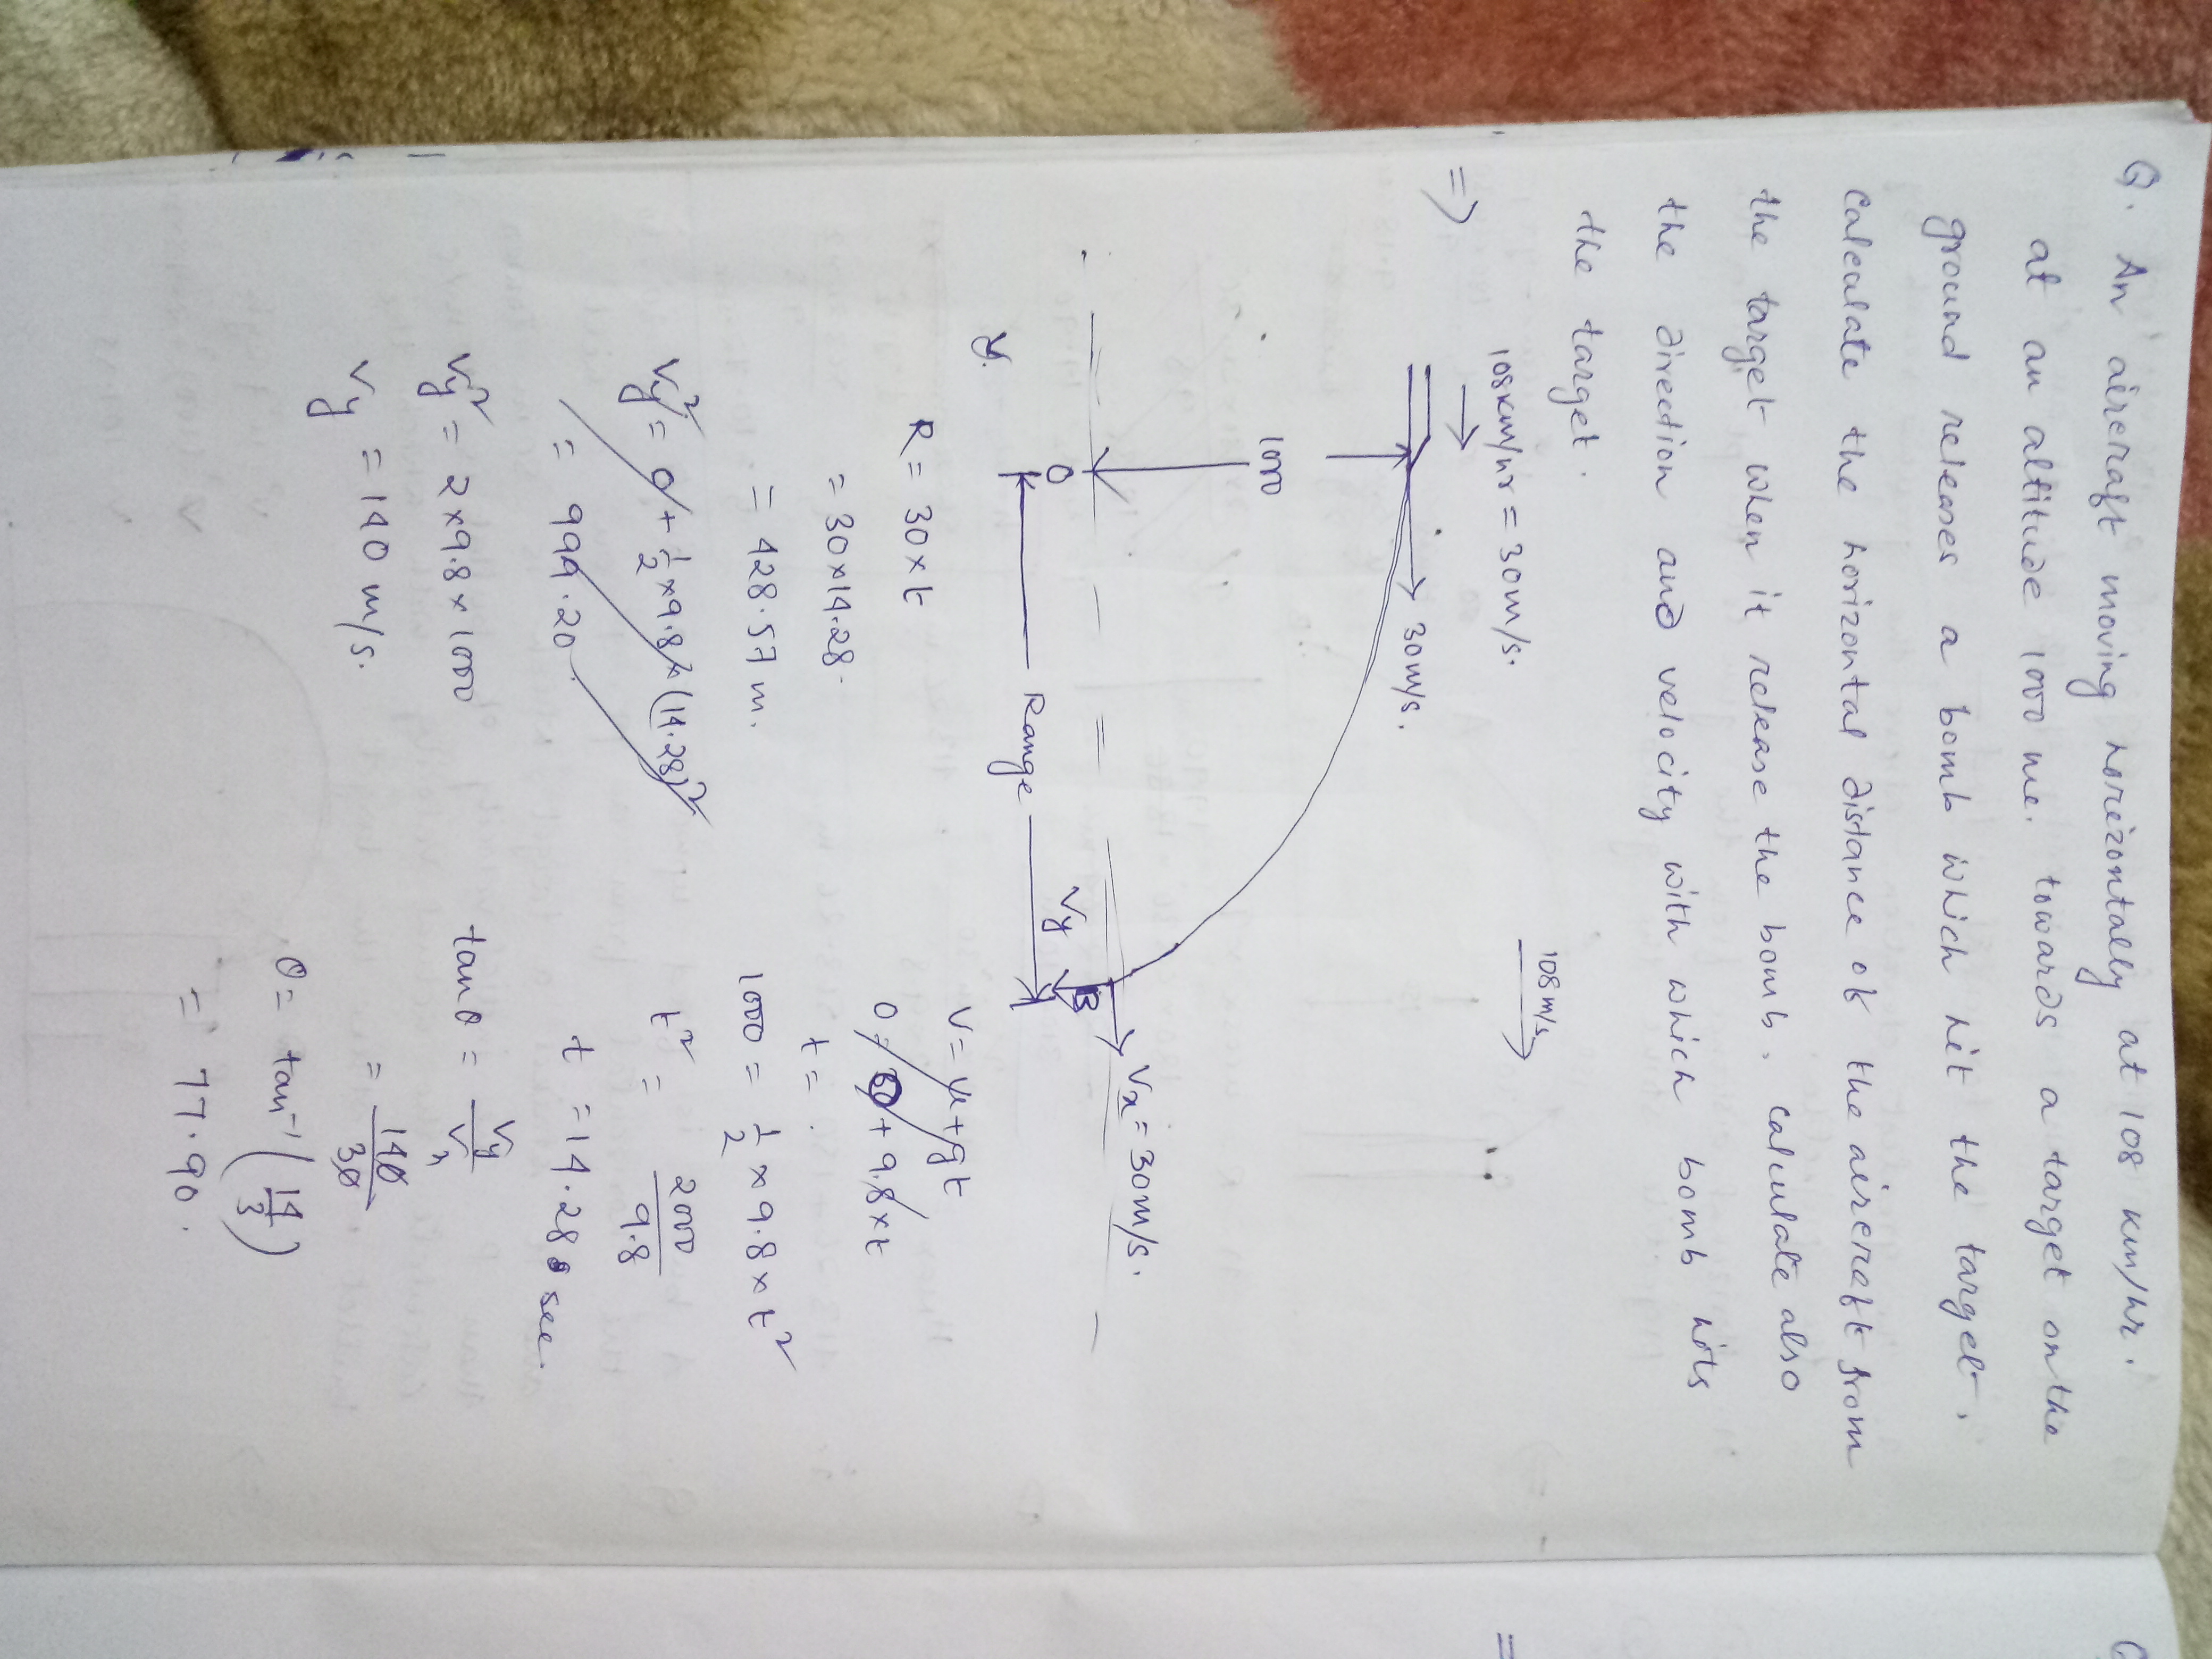 Q. An aircraft moving horizontally at 108 km/hr.
at an altitude 1000 me. towards a target on the
ground releases a bomb which hit the target.
Calculate the horizontal distance of the aircraft from
the target when it release the bomb. Calculate also
the direction and velocity with which bomb hits
the target.
108 m/s
108 km/hr = 30 m/s.
=>
30 m/s.
1000
Vx = 30 m/s.
O
Vy
B
Range
R = 30 × t
= 30 × 14.28
= 428.57 m.
Vy² = 0 + 1/2 × 9.8 × (14.28)²
= 999.20
Vy² = 2 × 9.8 × 1000
Vy = 140 m/s.
V = u + gt
0 = 30 + 9.8 × t
t = .
1000 = 1/2 × 9.8 × t²
t² = 2000/9.8
t = 14.28 sec.
tan θ = Vy/Vx
= 140/30
θ = tan⁻¹ (14/3)
= 77.90.